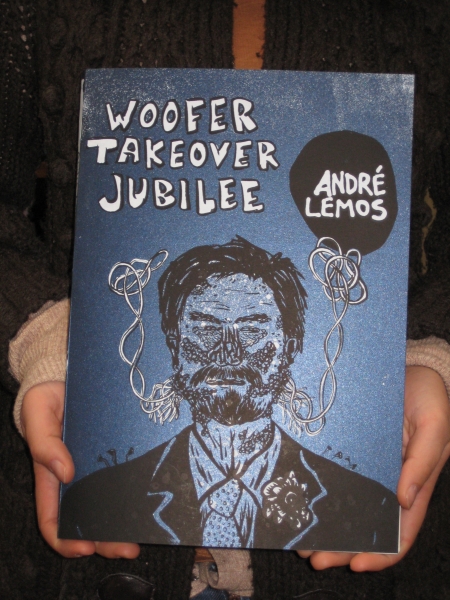 WOOFER
TAKEOVER
JUBILEE
ANDRÉ
LEMOS